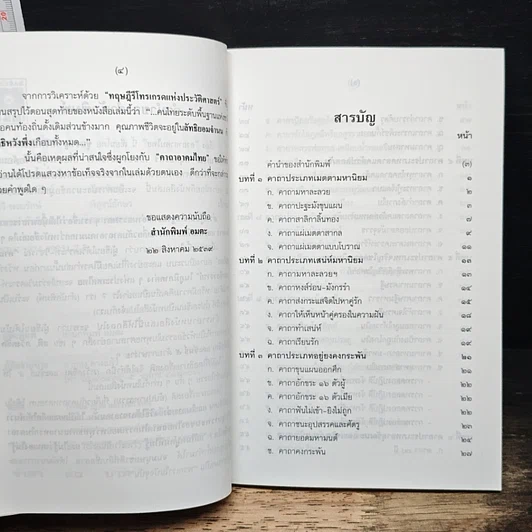 (๔)
จากการวิเคราะห์ด้วย "ทฤษฎีรีโทรเกรดแห่งประวัติศาสตร์"
นสรุปไว้ตอนสุดท้ายของหนังสือเล่มนี้ว่า "...คนไทยระดับพื้นฐานแห่ง
อคนท้องถิ่นดั้งเดิมส่วนข้างมาก คุณภาพชีวิตจะอยู่ในลัทธิยอมจำนน
ธิหวังพึ่งเกือบทั้งหมด..."
นั่นคือเหตุผลที่น่าสนใจซึ่งผูกโยงกับ "คาถาอาคมไทย"
ท่านได้โปรดแสวงหาข้อเท็จจริงจากในเล่มด้วยตนเอง ดีกว่าที่จะ
ยคำพูดใด ๆ
ขอแสดงความนับถือ
สำนักพิมพ์ อมตะ
๒๒ สิงหาคม ๒๕๓๙
สารบัญ
หน้า
คำนำของสำนักพิมพ์ (๓)
บทที่ ๑ คาถาประเภทเมตตามหานิยม ๑
ก. คาถามหาละลวย ๑
ข. คาถาปะระมังขุนแผน ๓
ค. คาถาสาลิกาลิ้นทอง ๕
ง. คาถาแผ่เมตตาสากล ๙
จ. คาถาแผ่เมตตาแบบโบราณ ๑๑
บทที่ ๒ คาถาประเภทเสน่ห์มหานิยม ๑๓
ก. คาถามหาละลวยฯ ๑๓
ข. คาถาหงส์ร่อน-มังกรรำ ๑๔
ค. คาถาส่งกระแสจิตไปหาคู่รัก ๑๕
ง. คาถาให้เห็นหน้าคู่ครองในความฝัน ๑๗
จ. คาถาทำเสน่ห์ ๑๘
ฉ. คาถาเรียนรัก ๑๙
บทที่ ๓ คาถาประเภทอยู่ยงคงกระพัน ๒๑
ก. คาถาขุนแผนออกศึก ๒๑
ข. คาถาอักขระ ๑๖ ตัวผู้ ๒๒
ค. คาถาอักขระ ๑๖ ตัวเมีย ๒๒
ง. คาถาฟันไม่เข้า-ยิงไม่ถูก ๒๒
จ. คาถาชนะอุปสรรคและศัตรู ๒๔
ฉ. คาถายอดมหามนต์ ๒๕
ช. คาถาคงกระพัน ๒๗